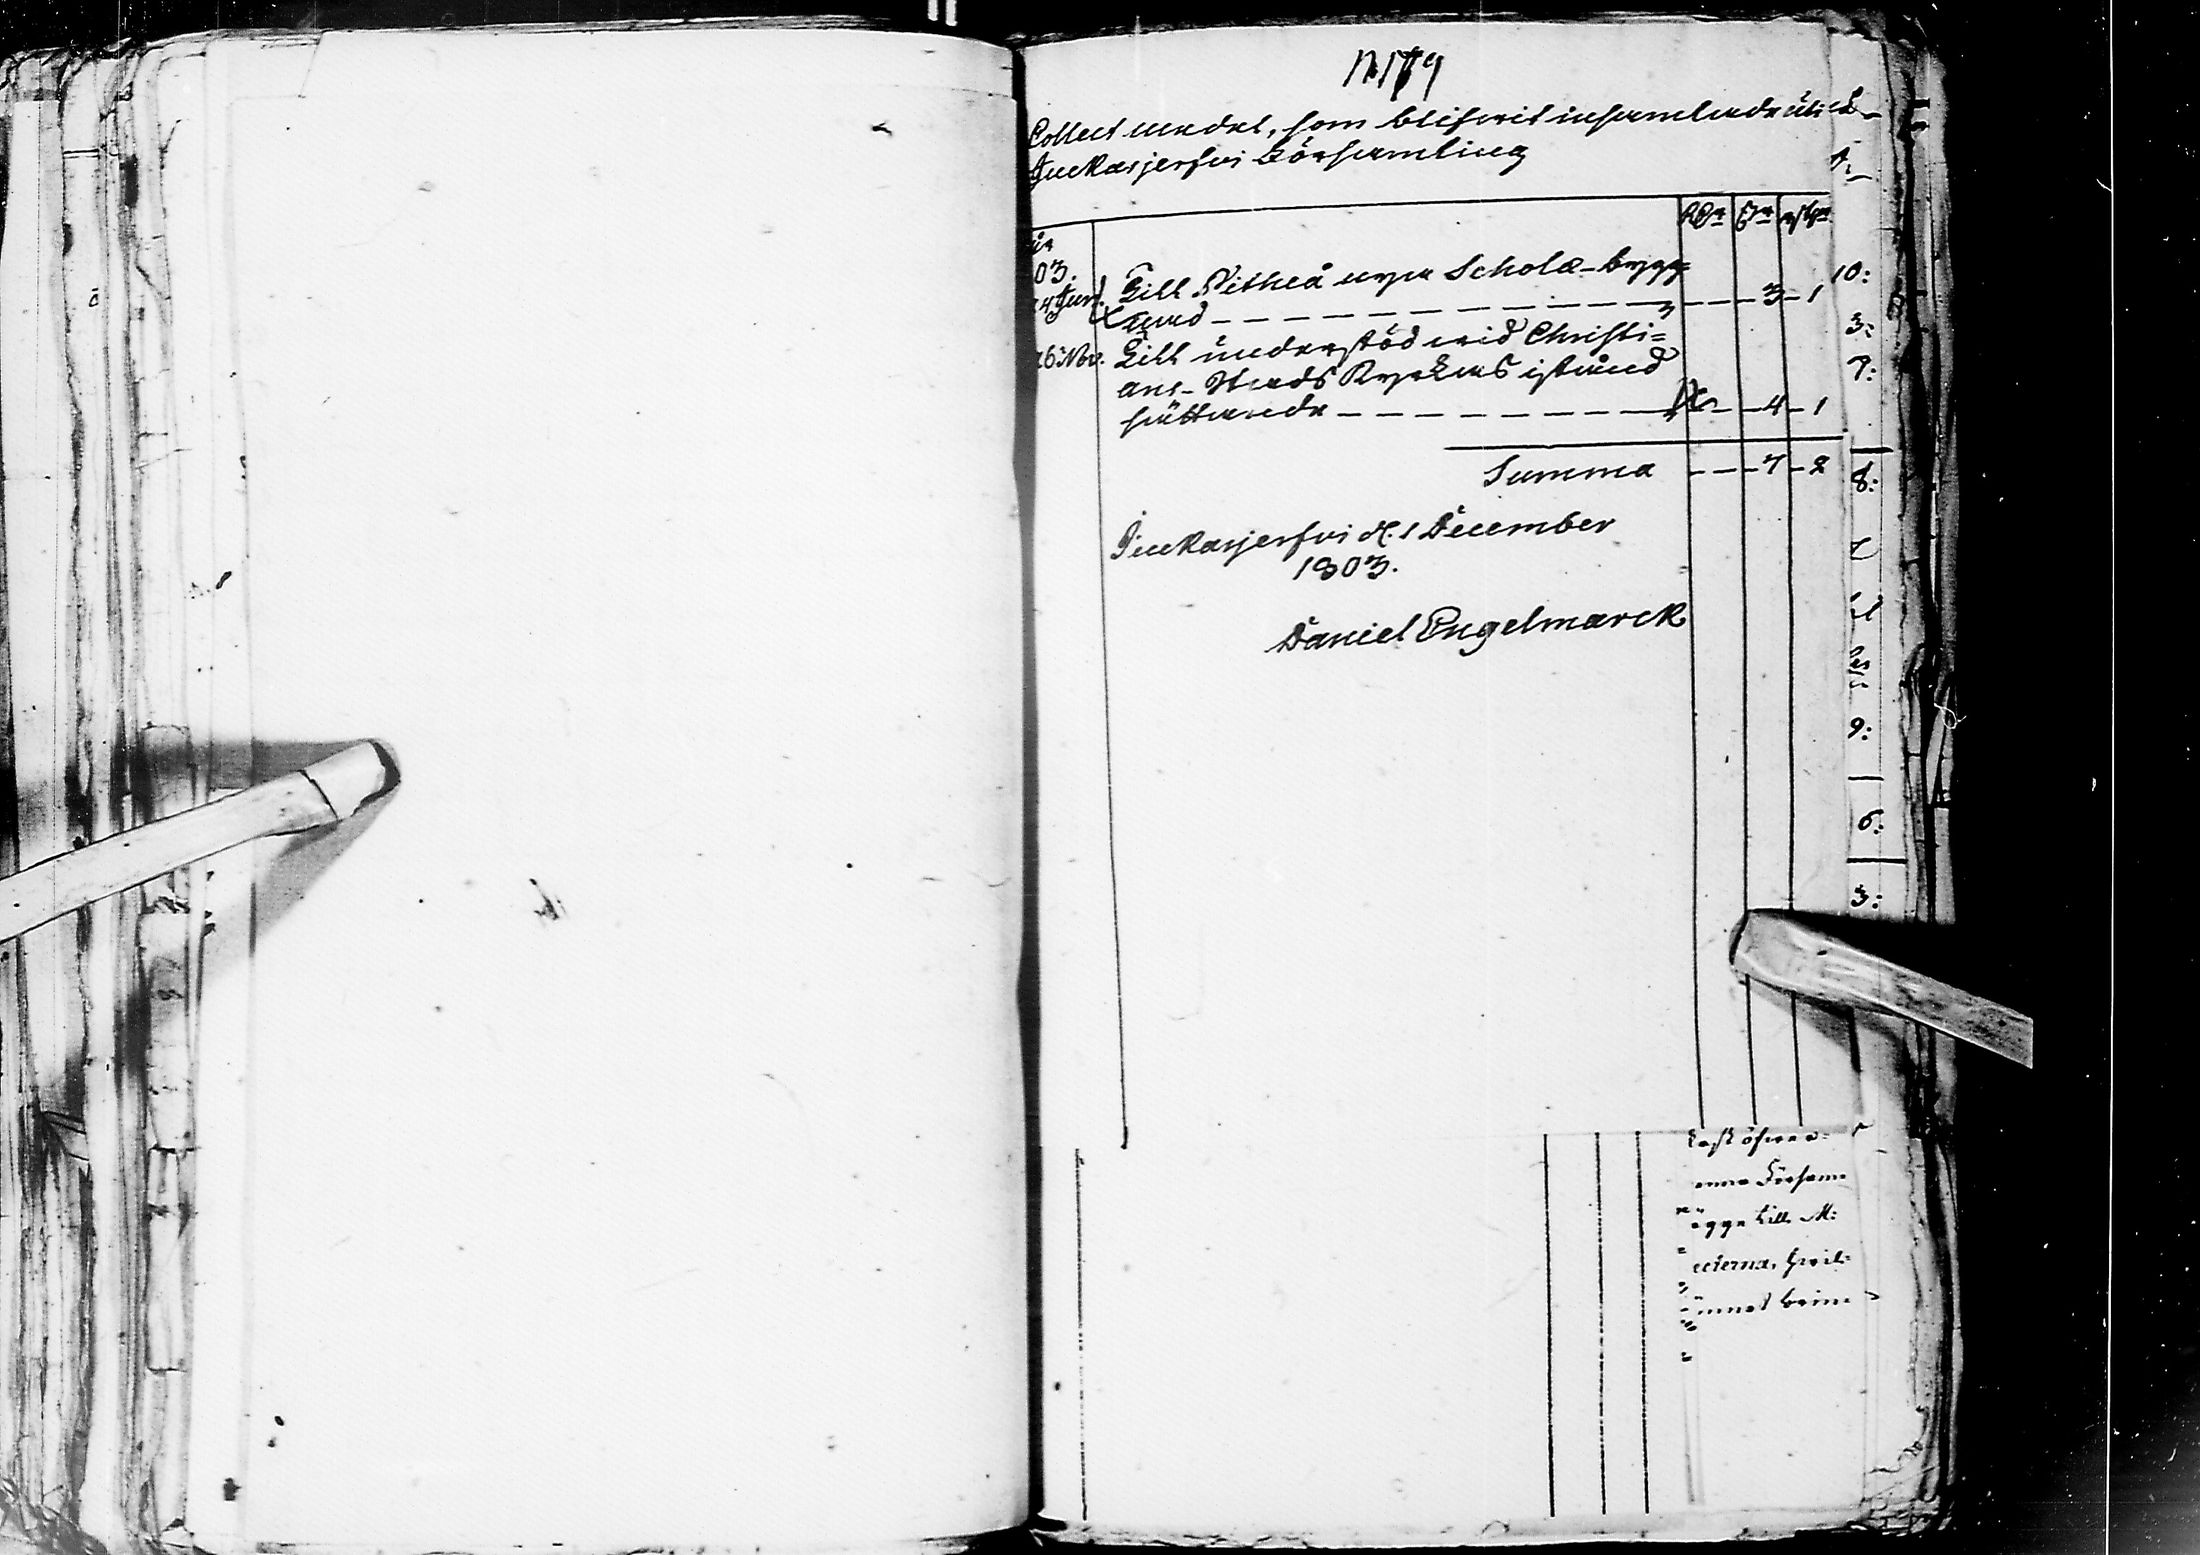 N 179
Collect medel, som blifwit insamlade uti
Juckasjerfwi Församling
RDr ß rst
03.
24 Junl. Till Pitheå nya Scholæ-bygg=
nad - - - - - 3 - 1
26 Nov. Till understöd wid Christi=
ans-Stads Kyrkas istånd
sättande - - - - - 4 - 1
Summa - - - 7 - 2
Juckasjerfwi d. 1 December
1803.
Daniel Engelmarck
10:
3:
7:
8:
9:
6:
3:
öfwer=
enna Försam
ägga till M:
ecterna, hwil=